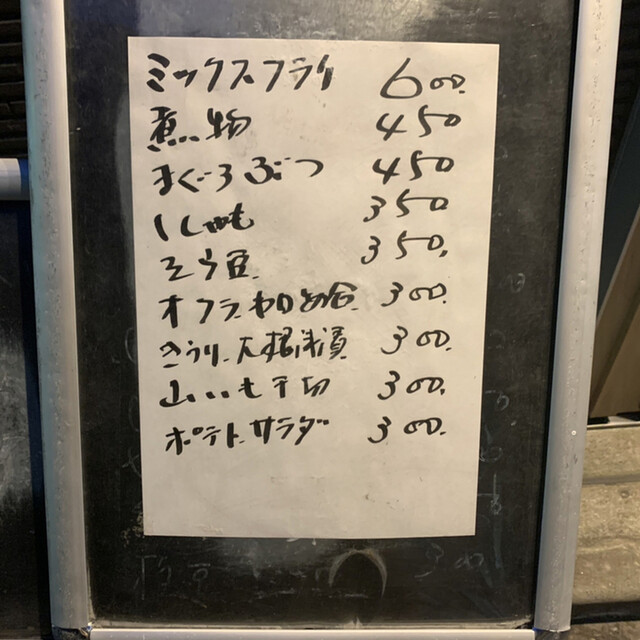 ミックスフライ 600.
煮物 450
まぐろぶつ 450
350
そら豆. 350.
オクラ 和え 300.
きうり、大根浅漬 300.
山いも千切 300.
ポテトサラダ 300.